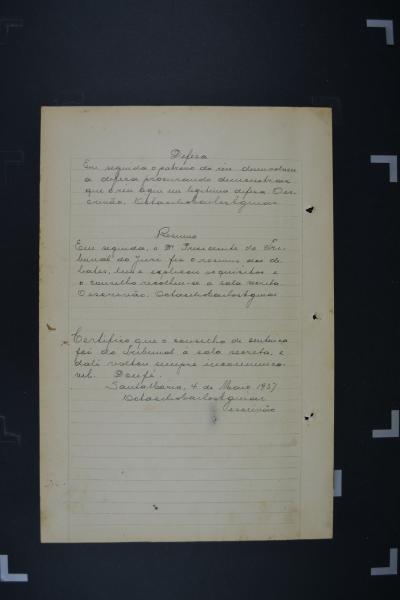 Defesa
Em seguida o patrono do réu desenvolveu
a defesa procurando demonstrar
que o réu agiu em legitima defesa. O es-
crivão, Octacilio Carlos Aguiar
Resumo
Em seguida, o Dr. Presidente do Tri-
bunal do Juri fez o resumo dos de-
bates, leu e explicou os quesitos e
o conselho recolheu-se a sala secreta.
O escrivão. Octacilio Carlos Aguiar
Certifico que o conselho de sentença
foi do Tribunal a sala secreta, e
dali voltou sempre incommunica-
vel. Dou fé.
Santa Maria, 4 de Maio 1937
Octacilio Carlos Aguiar
escrivão